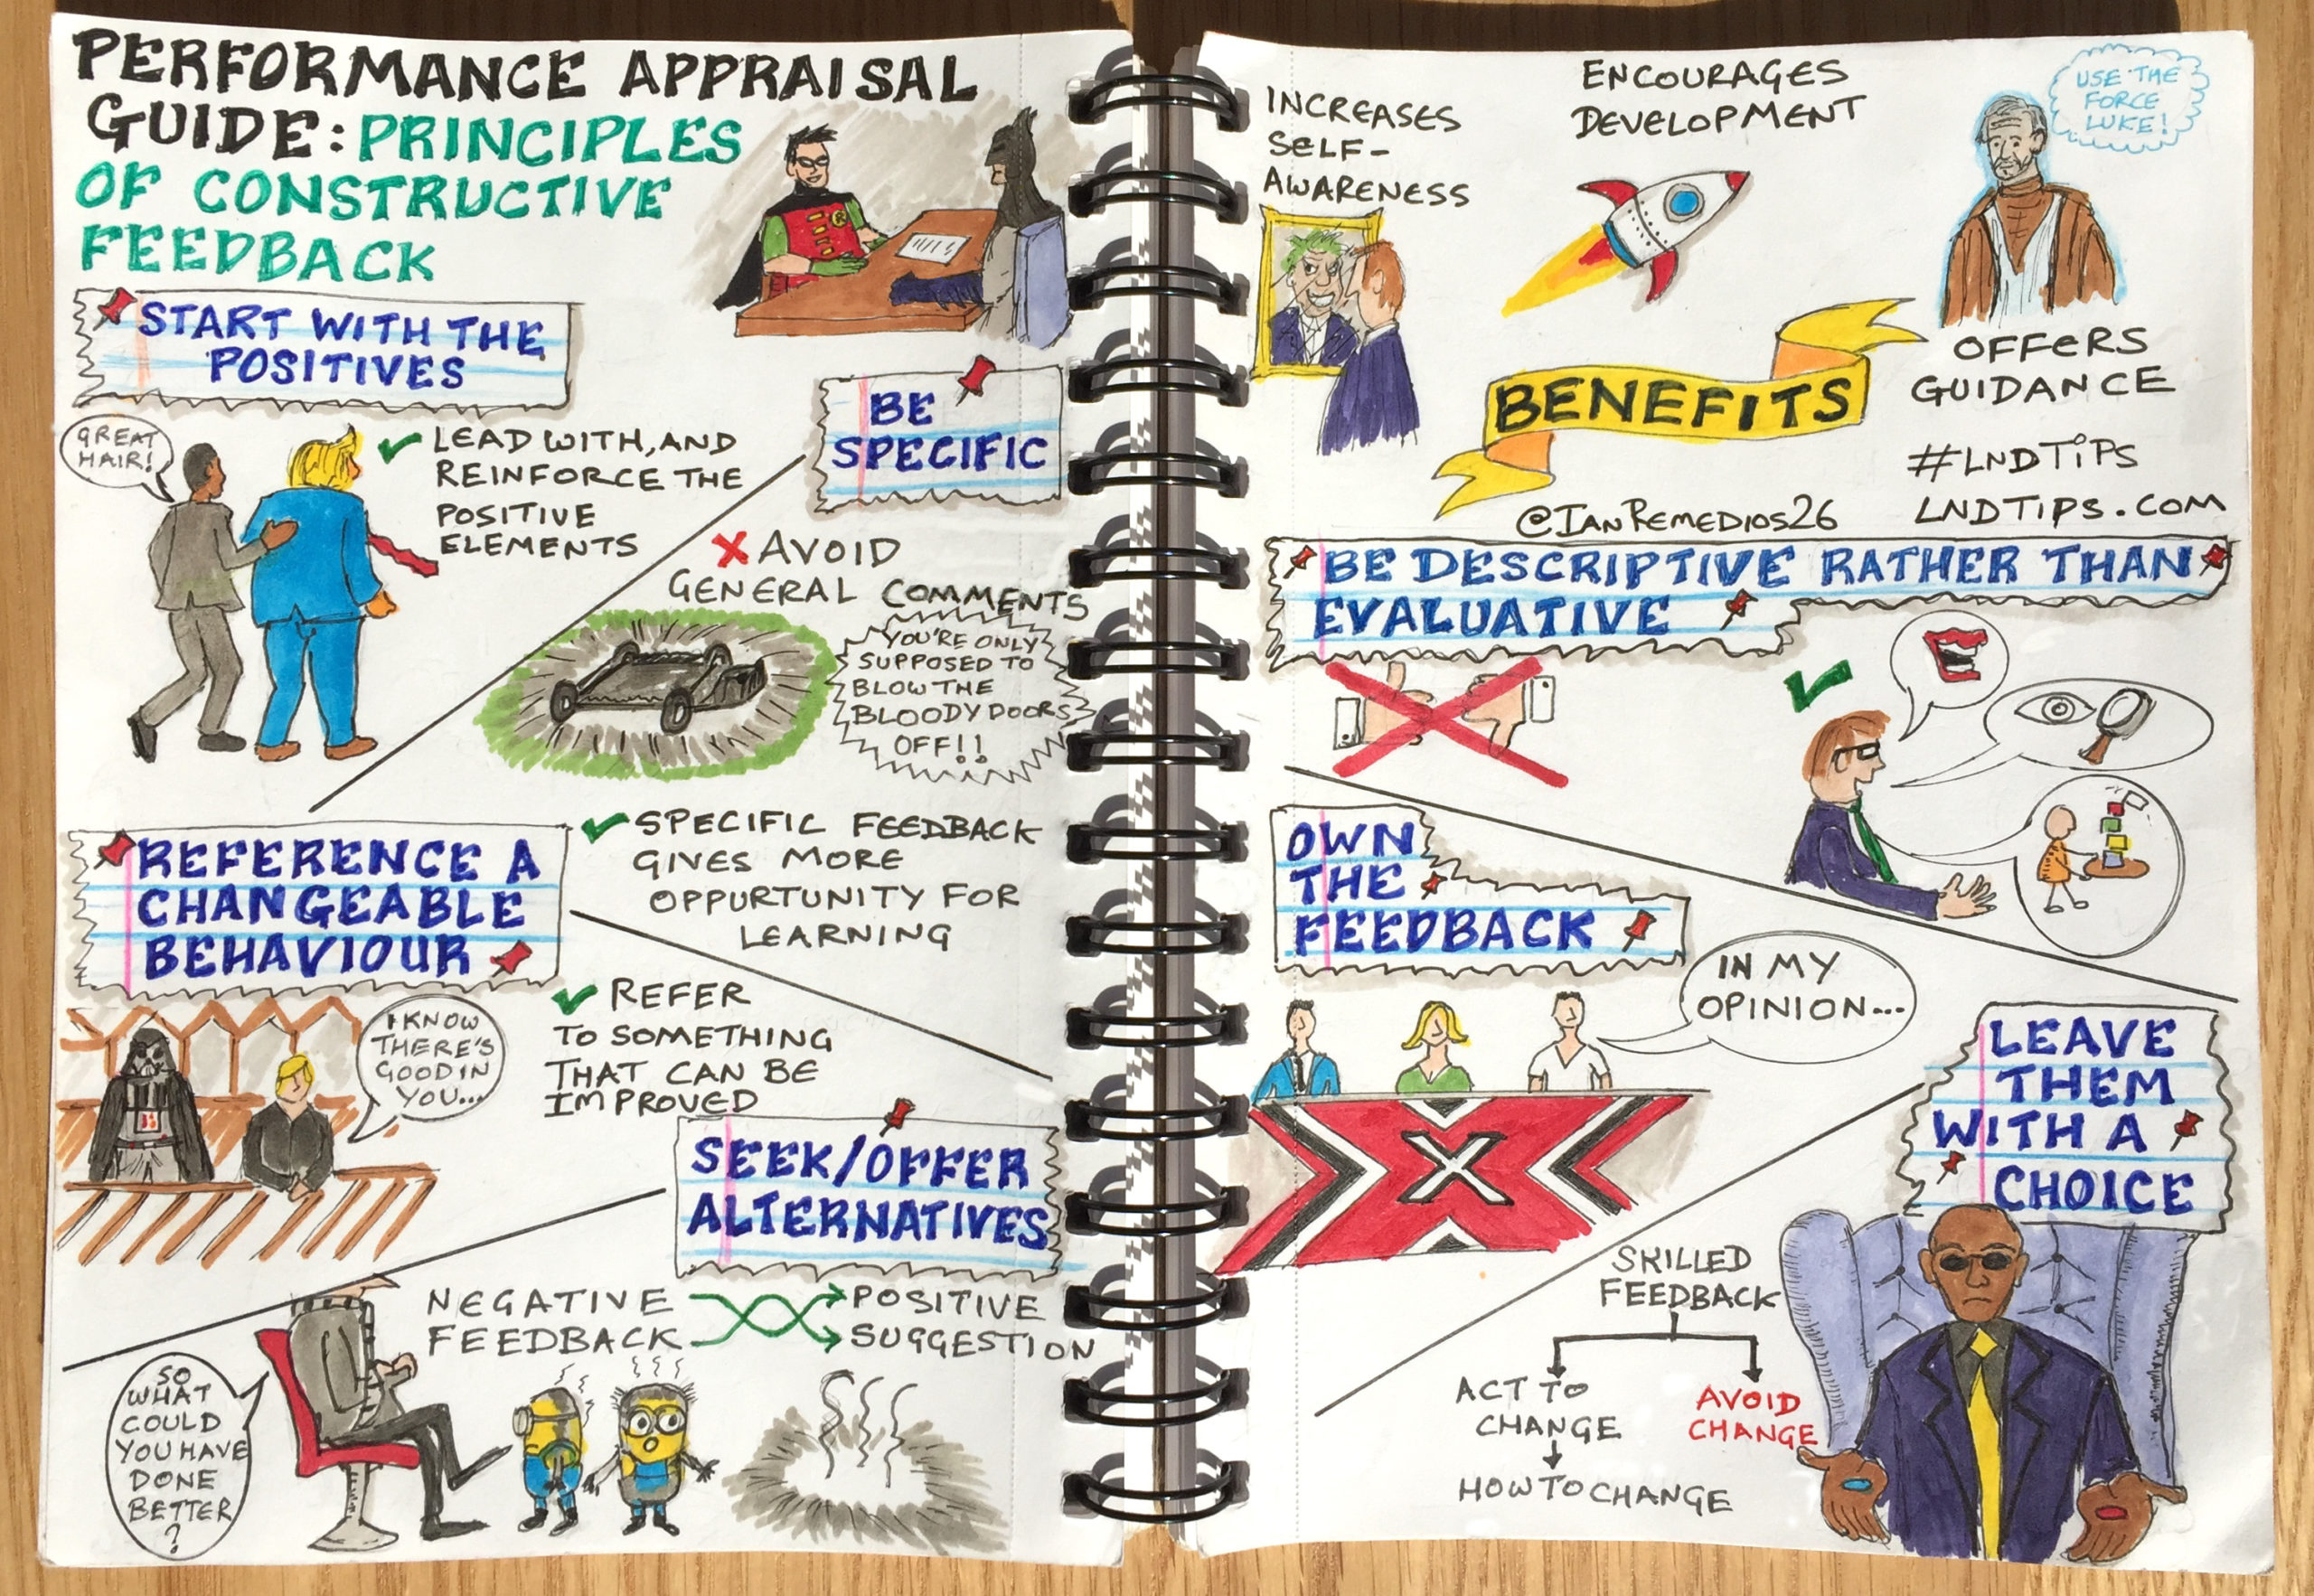 PERFORMANCE APPRAISAL
GUIDE: PRINCIPLES
OF CONSTRUCTIVE
FEEDBACK
START WITH THE
POSITIVES
GREAT
HAIR!
✓ LEAD WITH, AND
REINFORCE THE
POSITIVE
ELEMENTS
BE
SPECIFIC
X AVOID
GENERAL COMMENTS
YOU'RE ONLY
SUPPOSED TO
BLOW THE
BLOODY DOORS
OFF!!
✓ SPECIFIC FEEDBACK
GIVES MORE
OPPURTUNITY FOR
LEARNING
REFERENCE A
CHANGEABLE
BEHAVIOUR
I KNOW
THERE'S
GOOD IN
YOU...
✓ REFER
TO SOMETHING
THAT CAN BE
IMPROVED
SEEK/OFFER
ALTERNATIVES
NEGATIVE
FEEDBACK
POSITIVE
SUGGESTION
SO
WHAT
COULD
YOU HAVE
DONE
BETTER
?
INCREASES
SELF-
AWARENESS
ENCOURAGES
DEVELOPMENT
USE THE
FORCE
LUKE!
OFFERS
GUIDANCE
BENEFITS
#LNDTIPS
@IANREMEDIOS26
LNDTIPS.COM
BE DESCRIPTIVE RATHER THAN
EVALUATIVE
OWN
THE
FEEDBACK
IN MY
OPINION...
X
LEAVE
THEM
WITH A
CHOICE
SKILLED
FEEDBACK
ACT TO
CHANGE
HOW TO CHANGE
AVOID
CHANGE